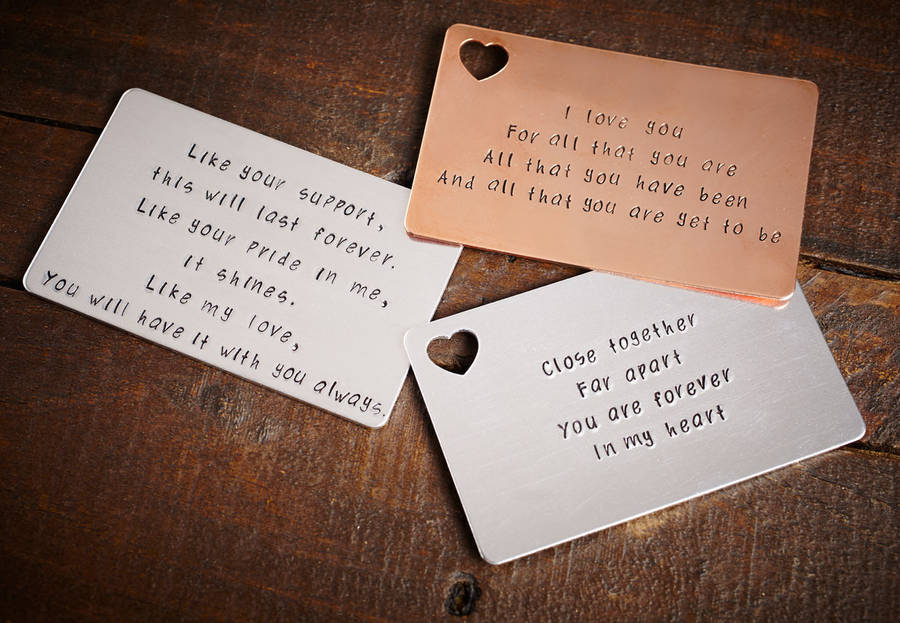 Like your support,
this will last forever.
Like your pride in me,
it shines.
Like my love,
You will have it with you always.
I love you
For all that you are
All that you have been
And all that you are yet to be
Close together
Far apart
You are forever
In my heart